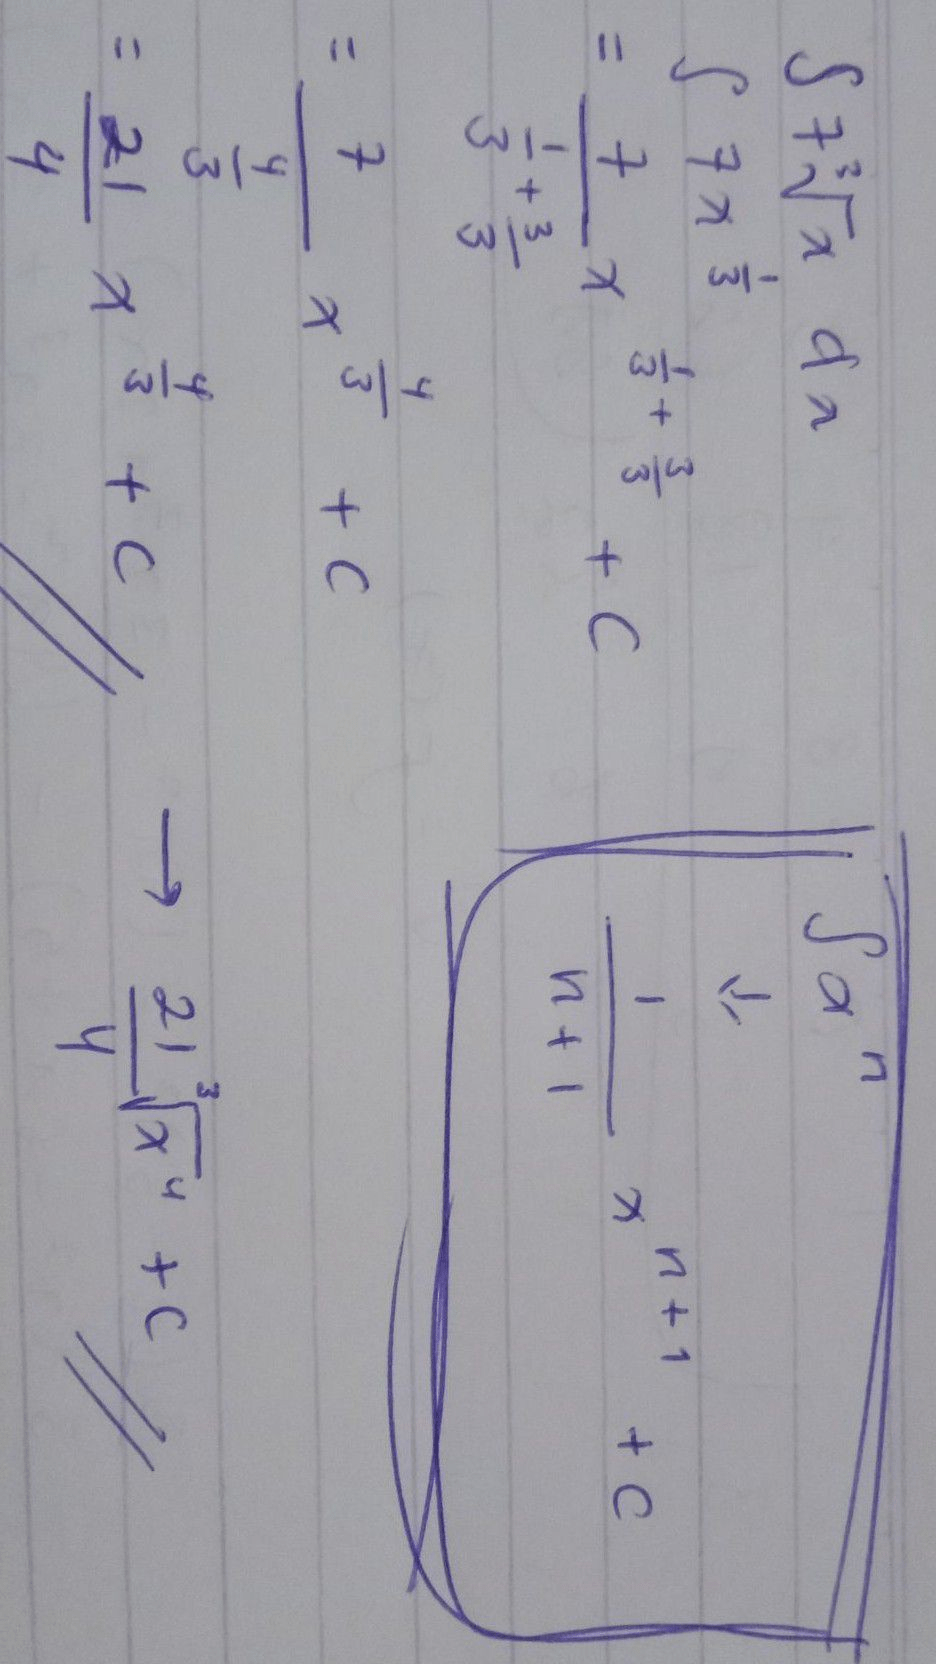 ∫ 7∛x dx
∫ 7x^(1/3)
= 7/(1/3 + 3/3) x^(1/3 + 3/3) + C
= 7/(4/3) x^(4/3) + C
= 21/4 x^(4/3) + C → 21/4 ∛x⁴ + C
∫ x^n
↓
1/(n+1) x^(n+1) + C